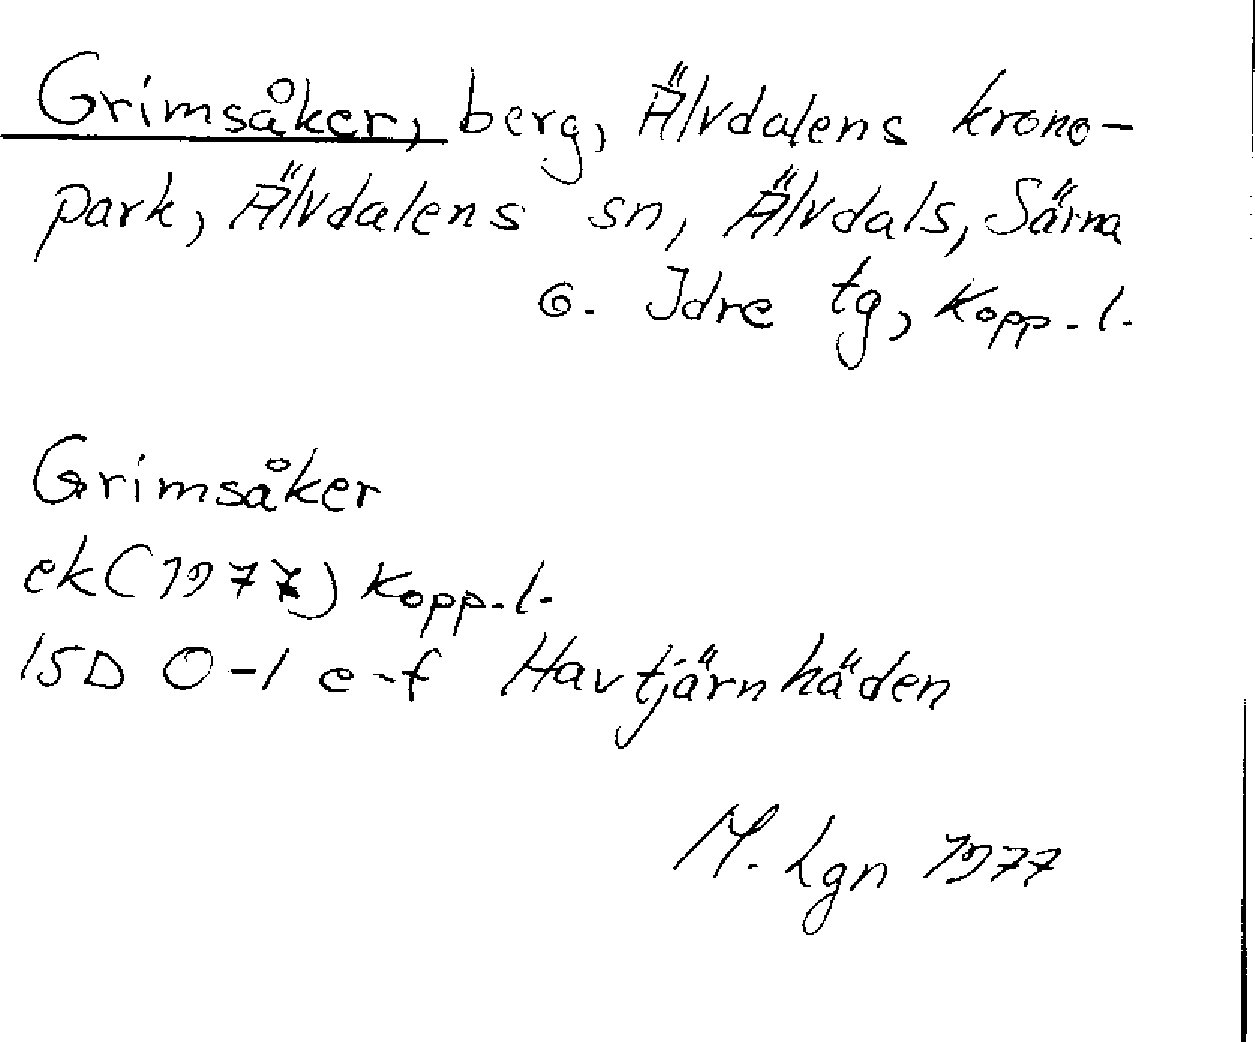 Grimsåker, berg, Älvdalens krono-
park, Älvdalens sn, Älvdals, Särna
o. Idre tg, Kopp. l.
Grimsåker
ek (1977) Kopp. l.
15D 0-1 e-f Havtjärnhäden
M. Lgn 1977